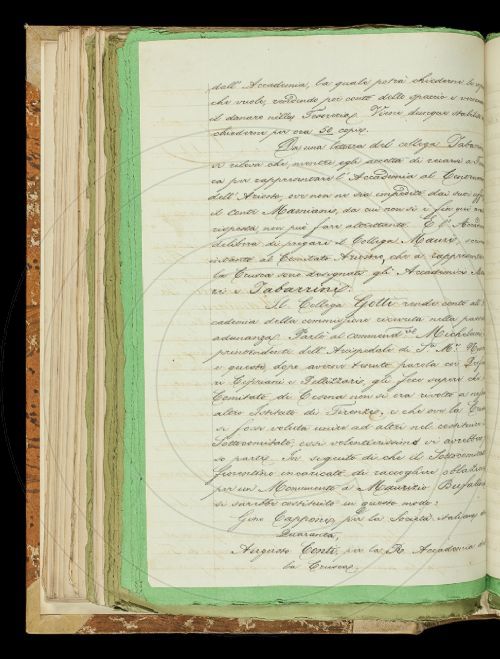 dall'Accademia, la quale potrà chiederne le
che vuole, vendendo per conto dello spaccio e
il danaro nella Tesoreria. Viene dunque
chiederne per ora 50 copie.
Da una lettera del collega
si rileva che avrebbe egli accolta di recarsi a
per rappresentare l'Accademia al Centenario
dell'Ariosto, ove non ne sia impedito dai suoi
il Conte Mamiani, da cui non si è fin qui
risposta non può fare altrettanto. E l'
delibera di pregare il Collega Mauri,
al Comitato Ariosteo, che a
la Crusca sono designati gli Accademici
ri e Tabarrini.
Il Collega Gotti rende conto all'
cademia della commissione ricevuta nella
adunanza. Parlò al Commend.re
dell'Arcispedale di S.ta M.a
e questo dopo averne tenuto parola coi
ri Cipriani e Pellizzari, gli fece sapere che
Comitato di Cesena non si era rivolto a
altro Istituto di Firenze, e che ove la
si fosse voluta unire ad altri nel costituire
Sottocomitato, essi volentierissimo vi avrebbero
parte. In seguito di che il
Fiorentino incaricato di raccogliere
per un Monumento a Maurizio
si sarebbe costituito in questo modo:
Gino Capponi, per la Società italiana dei
Quaranta,
Augusto Conti, per la R. Accademia
la Crusca,